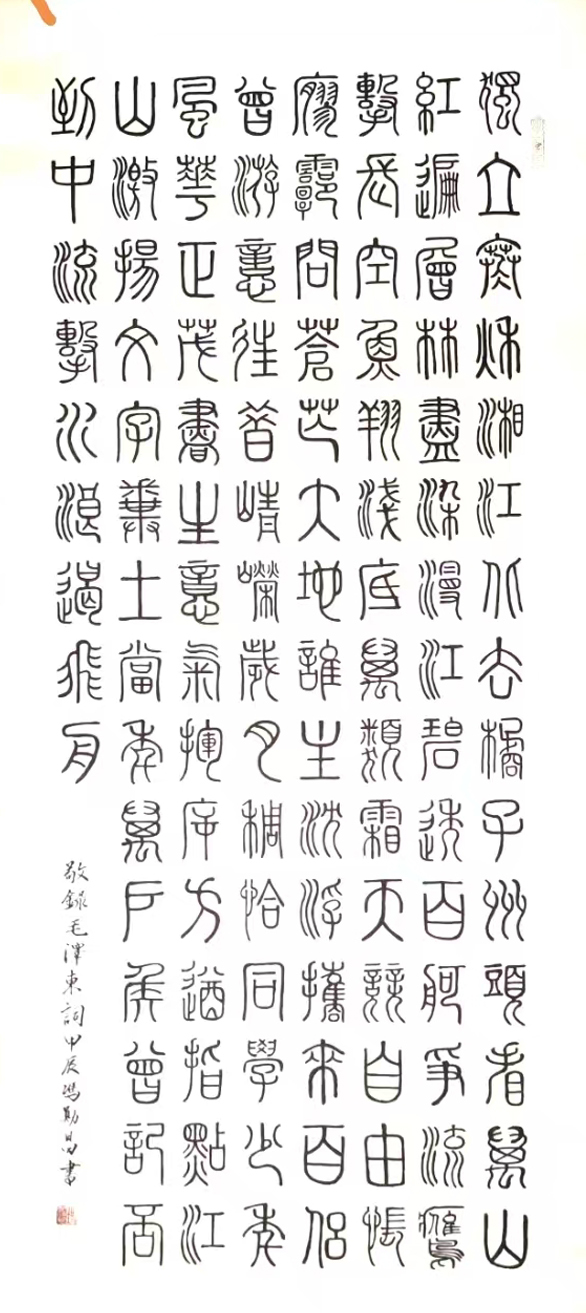 獨立寒秋湘江北去橘子州頭看萬山
紅遍層林盡染漫江碧透百舸爭流鷹
擊長空魚翔淺底萬類霜天競自由悵
廖霩問蒼茫大地誰主沈浮攜來百侶
曾游憶往昔崢嶸歲月稠恰同學少年
風華正茂書生意氣揮斥方遒指點江
山激揚文字糞土當年萬戶侯曾記否
到中流擊水浪遏飛舟
敬錄毛澤東詞甲辰書